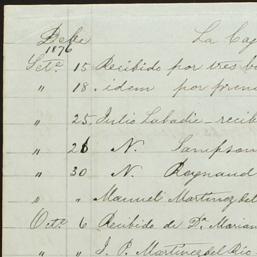 Debe La Caj
1876
Set.e 15 Recibido por tres bo
" 18 idem por prim
" 25 Julio Labadie - recib
" 26 N. Sampson
" 30 N. Reynaud
" " Manuel Martinez del
Oct.e 6 Recibido de Dn. Marian
" " J. P. Martinez del Rio